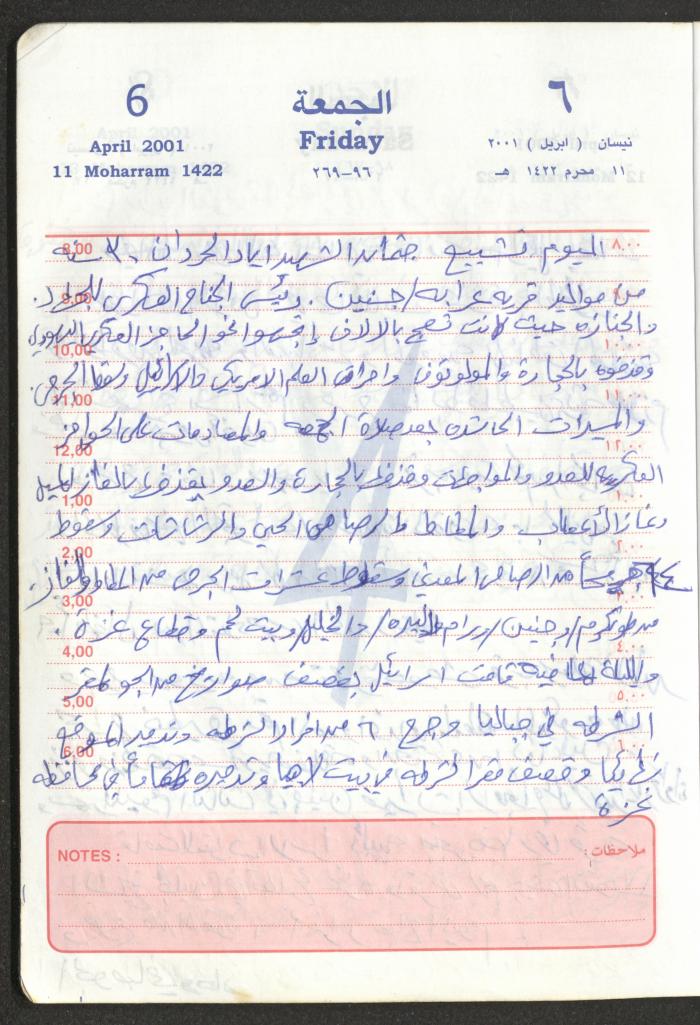 6 الجمعة ٦
April 2001 Friday نيسان ( ابريل ) ٢٠٠١
11 Moharram 1422 ٢٦٩-٩٦ ١١ محرم ١٤٢٢ هـ
8,00 ٨,٠٠
اليوم تشييع جثمان الشهيد اياد الحردان ٣٠ سنه
من مواليد قرية عرابه/جنين. ورئيس الجناح العسكري للجهاد.
والجنازه حيث كانت تعج بالالاف إتجهوا نحو الحاجز العسكري اليهودي
10,00 ١٠,٠٠
وقذفوه بالحجارة والمولوتوف واحراق العلم الامريكي والاسرائيلي وسقط الجرحى.
11,00 ١١,٠٠
والمسيرات الحاشده بعد صلاة الجمعه والمصادمات على الحواجز
12,00 ١٢,٠٠
العسكريه للعدو والمواجهات وقذفها بالحجارة والعدو يقذفها بالغاز المسيل
1,00 ١,٠٠
وغاز الأعصاب والمطاط والرصاص الحي والرشاشات وسقوط
2,00 ٢,٠٠
جريحاً من الرصاص المعدني وسقوط عشرات الجرحى من المطاط والغاز.
3,00
من طولكرم/وجنين/ورام الله/البيره/والخليل/وبيت لحم وقطاع غزة.
4,00 ٤,٠٠
والليلة الماضيه قامت اسرائيل بقصف صواريخ من الجو لمقر
5,00 ٥,٠٠
الشرطه في جباليا وجرح ٦ من افراد الشرطه وتدمير الموقع
6,00
نهائياً وقصف مقر الشرطه في بيت لاهيا وتدميره في محافظه
غزة
NOTES : ملاحظات :